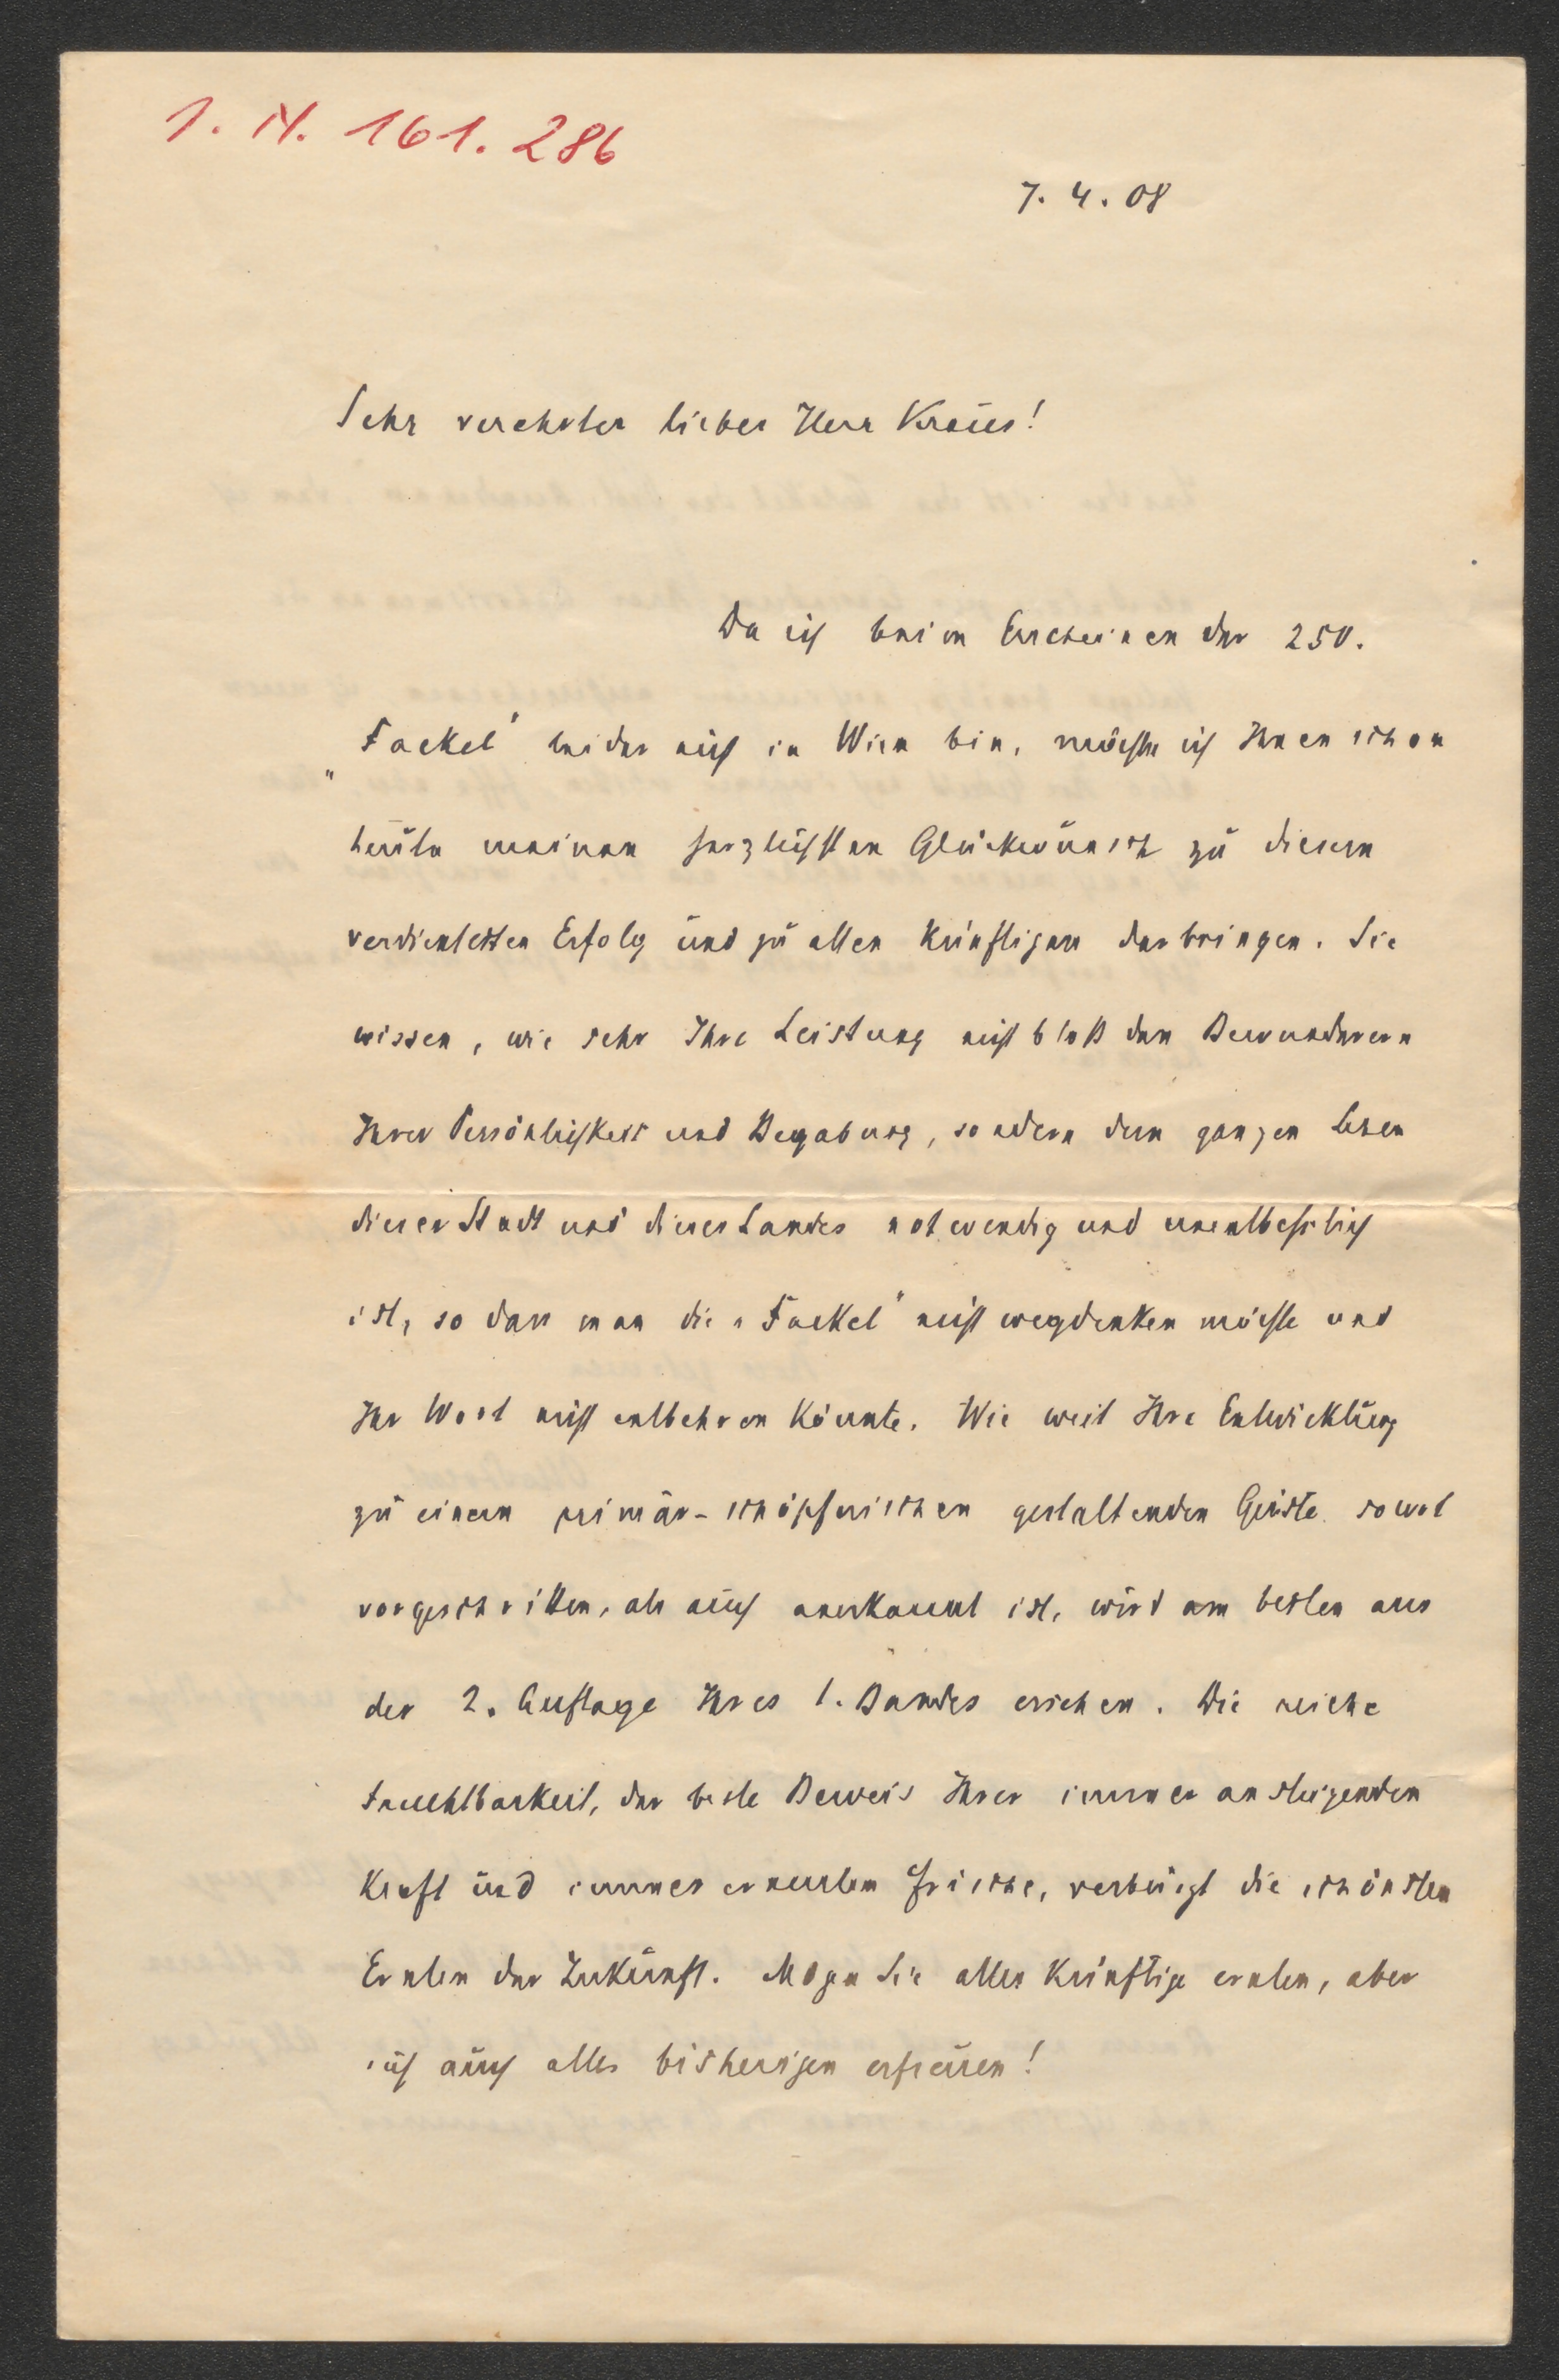 I. N. 161.286
7. 4. 08
Sehr verehrter lieber Herr Kraus!
Da ich beim Erscheinen der 250.
„Fackel" leider nicht in Wien bin, möchte ich Ihnen schon
heute meinen herzlichsten Glückwunsch zu diesem
verdientesten Erfolg und zu allen künftigen darbringen. Sie
wissen, wie sehr Ihre Leistung nicht bloß den Bewunderern
Ihrer Persönlichkeit und Begabung, sondern dem ganzen Leben
dieser Stadt und dieses Landes notwendig und unentbehrlich
ist, so dass man die „Fackel" nicht wegdenken möchte und
Ihr Wort nicht entbehren könnte. Wie weit Ihre Entwicklung
zu einem primär-schöpferischen gestaltenden Geiste sowol
vorgeschritten, als auch anerkannt ist, wird am besten aus
der 2. Auflage Ihres 1. Bandes ersehen. Die reiche
Fruchtbarkeit, der beste Beweis Ihrer immer ansteigenden
Kraft und immer erneuten Frische, verbürgt die schönsten
Ernten der Zukunft. Mögen Sie alles Künftige ernten, aber
sich auch alles bisherigen erfreuen!